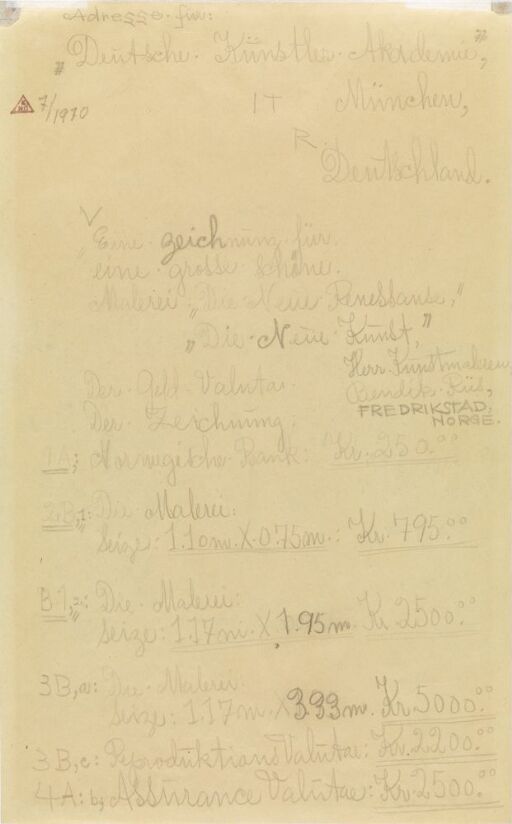 Adresse für:
"Deutsche Künstler Akademie,"
7/1970
IT München,
R.
Deutschland.
V
"Eine zeichnung für
eine grosse schöne.
Malerei: "Die Neue Renessanse,"
"Die Neue Künst,"
Herr Künstmaleren
Bendik Riis,
FREDRIKSTAD.
NORGE.
Der Geld Valuta.
Der Zeichnung.
1A; Norwegische Bank: Kr. 250.00
2B,1: Die Malerei:
Seize: 1.10m. X 0.75m.: Kr. 795.00
B1,2: Die Malerei:
Seize: 1.17m. X 1.95m. Kr. 2500.00
3B,a: Die Malerei.
Seize: 1.17m. X 3.33m. Kr. 5000.00
3B,c: Reproduktions Valutae: Kr. 2200.00
4A: b, Assurance Valutae: Kr. 2500.00